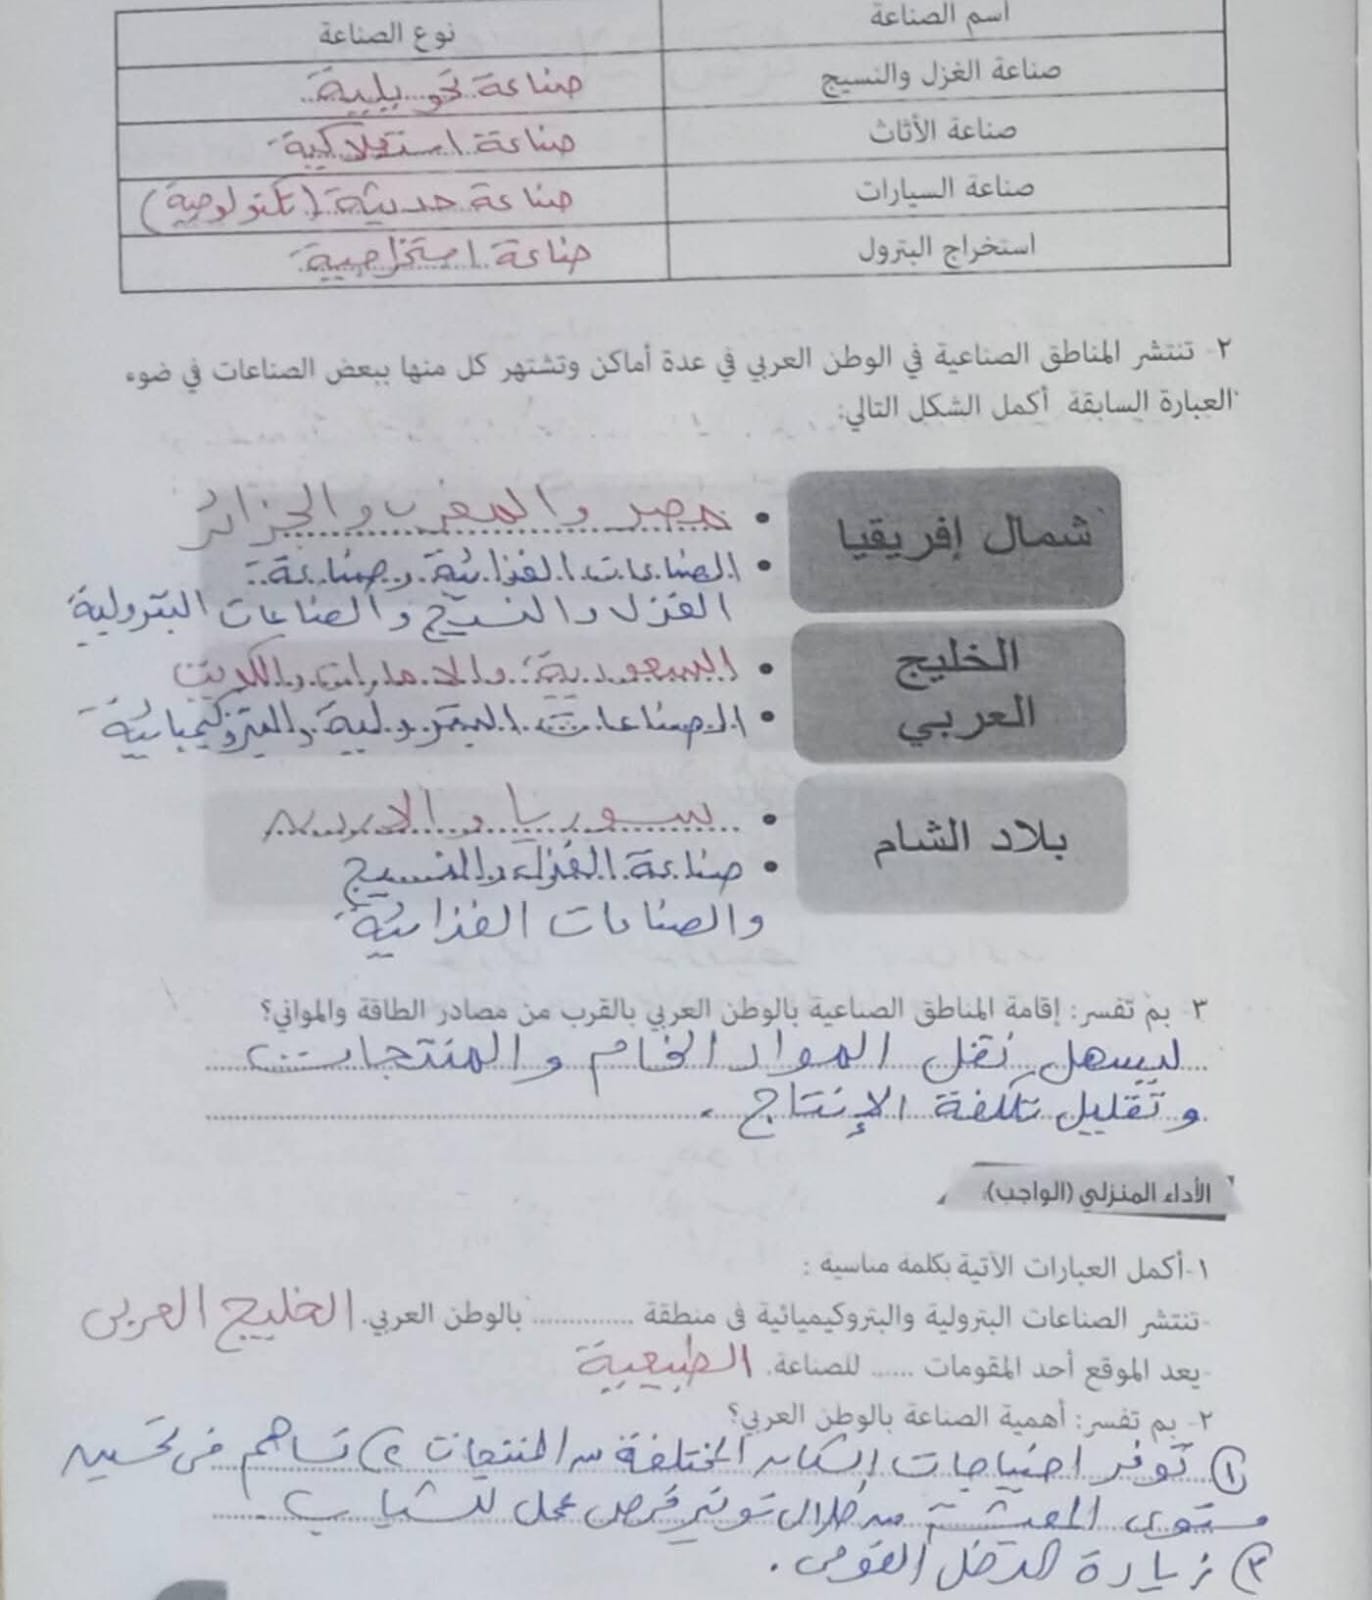 اسم الصناعة	نوع الصناعة
صناعة الغزل والنسيج	صناعة تحويلية
صناعة الأثاث	صناعة استهلاكية
صناعة السيارات	صناعة حديثة (تكنولوجية)
استخراج البترول	صناعة استخراجية
٢- تنتشر المناطق الصناعية في الوطن العربي في عدة أماكن وتشتهر كل منها ببعض الصناعات في ضوء
العبارة السابقة أكمل الشكل التالي:
شمال إفريقيا
• مصر والمغرب والجزائر
• الصناعات الغذائية وصناعة
الغزل والنسيج والصناعات البترولية
الخليج
العربي
• السعودية والامارات والكويت
• الصناعات البترولية والبتروكيميائية
بلاد الشام
• سوريا والاردن
• صناعة الغزل والنسيج
والصناعات الغذائية
٣- بم تفسر: إقامة المناطق الصناعية بالوطن العربي بالقرب من مصادر الطاقة والمواني؟
ليسهل نقل المواد الخام والمنتجات
وتقليل تكلفة الإنتاج .
الأداء المنزلي (الواجب):
١-أكمل العبارات الآتية بكلمة مناسبة :
-تنتشر الصناعات البترولية والبتروكيميائية في منطقة ............. بالوطن العربي. الخليج العربى
-يعد الموقع أحد المقومات ...... للصناعة. الطبيعية
٢- بم تفسر: أهمية الصناعة بالوطن العربي؟
١) توفر احتياجات السكان المختلفة من المنتجات ٢) تساهم فى تحسين
مستوى المعيشة من خلال توفير فرص عمل للشباب .
٣) زيادة الدخل القومى .